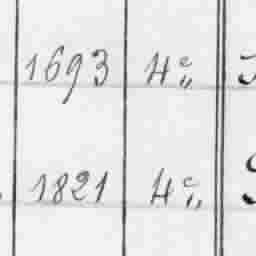 1693 Hc„
1821 Hc„